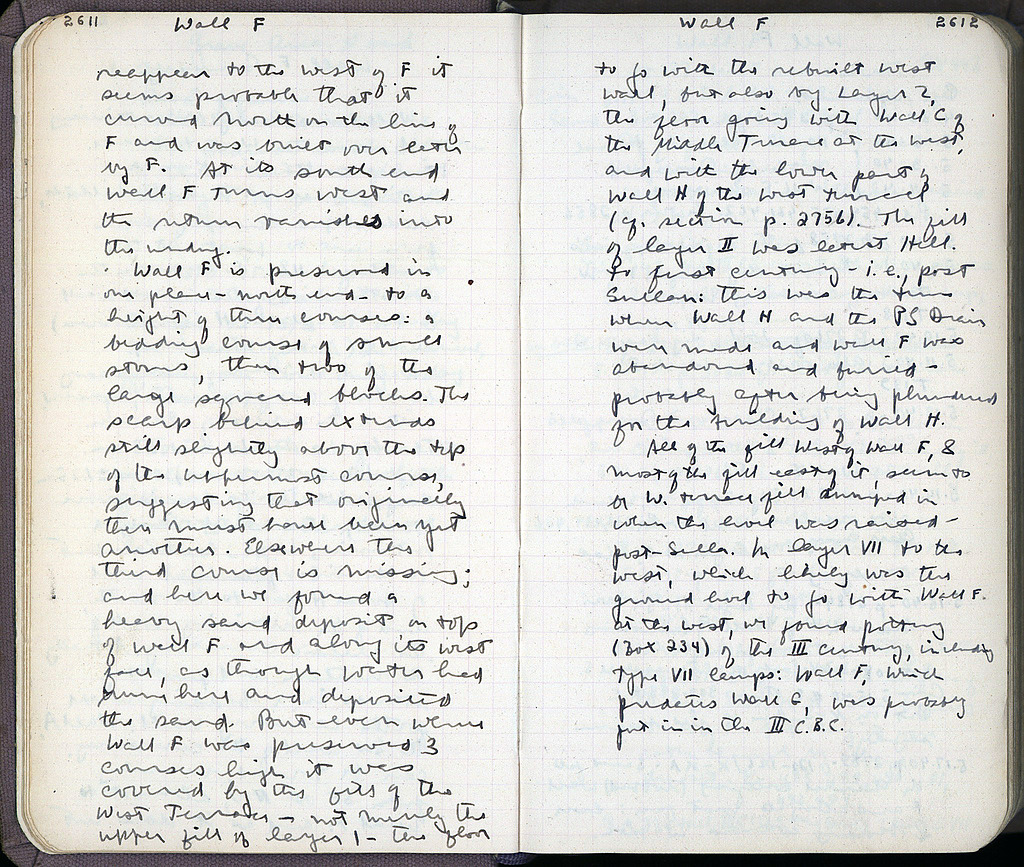 2611 Wall F
reappear to the west of F it
seems probable that it
curved north on the line of
F and was built over later
by F. At its south end
Wall F turns west and
the return vanishes into
the
Wall F is preserved in
one place - north end - to a
height of three courses: a
bedding course of small
stones, then two of the
large squared blocks. The
scarp behind extends
still slightly above the top
of the uppermost course,
suggesting that originally
there must have been yet
another. Elsewhere the
third course is missing;
and here we found a
heavy sand deposit on top
of wall F and along its west
face, as though water had
run here and deposited
the sand. But even where
Wall F was preserved 3
courses high it was
covered by the fill of the
West Terrace - not merely the
upper fill of layer 1 - the floor
Wall F 2612
to go with the rebuilt west
wall, but also by Layer 2,
the floor going with Wall C of
the Middle Terrace at the west,
and with the lower part of
Wall H of the west tunnel
(cf. section p. 2756). The fill
of layer II was latest Hell.
to first century - i.e., post
Sullan: this was the time
when Wall H and the PS Drain
were made and wall F was
abandoned and buried -
probably after being plundered
for the building of Wall H.
All of the fill West of Wall F, &
most of the fill east of it, seems to
be W. terrace fill dumped in
when the level was raised -
post-Sulla. In layer VII to the
west, which likely was the
ground level to go with Wall F.
at the west, we found pottery
(Box 234) of the III century, including
Type VII lamps: Wall F, which
predates Wall G, was probably
put in in the III C.B.C.